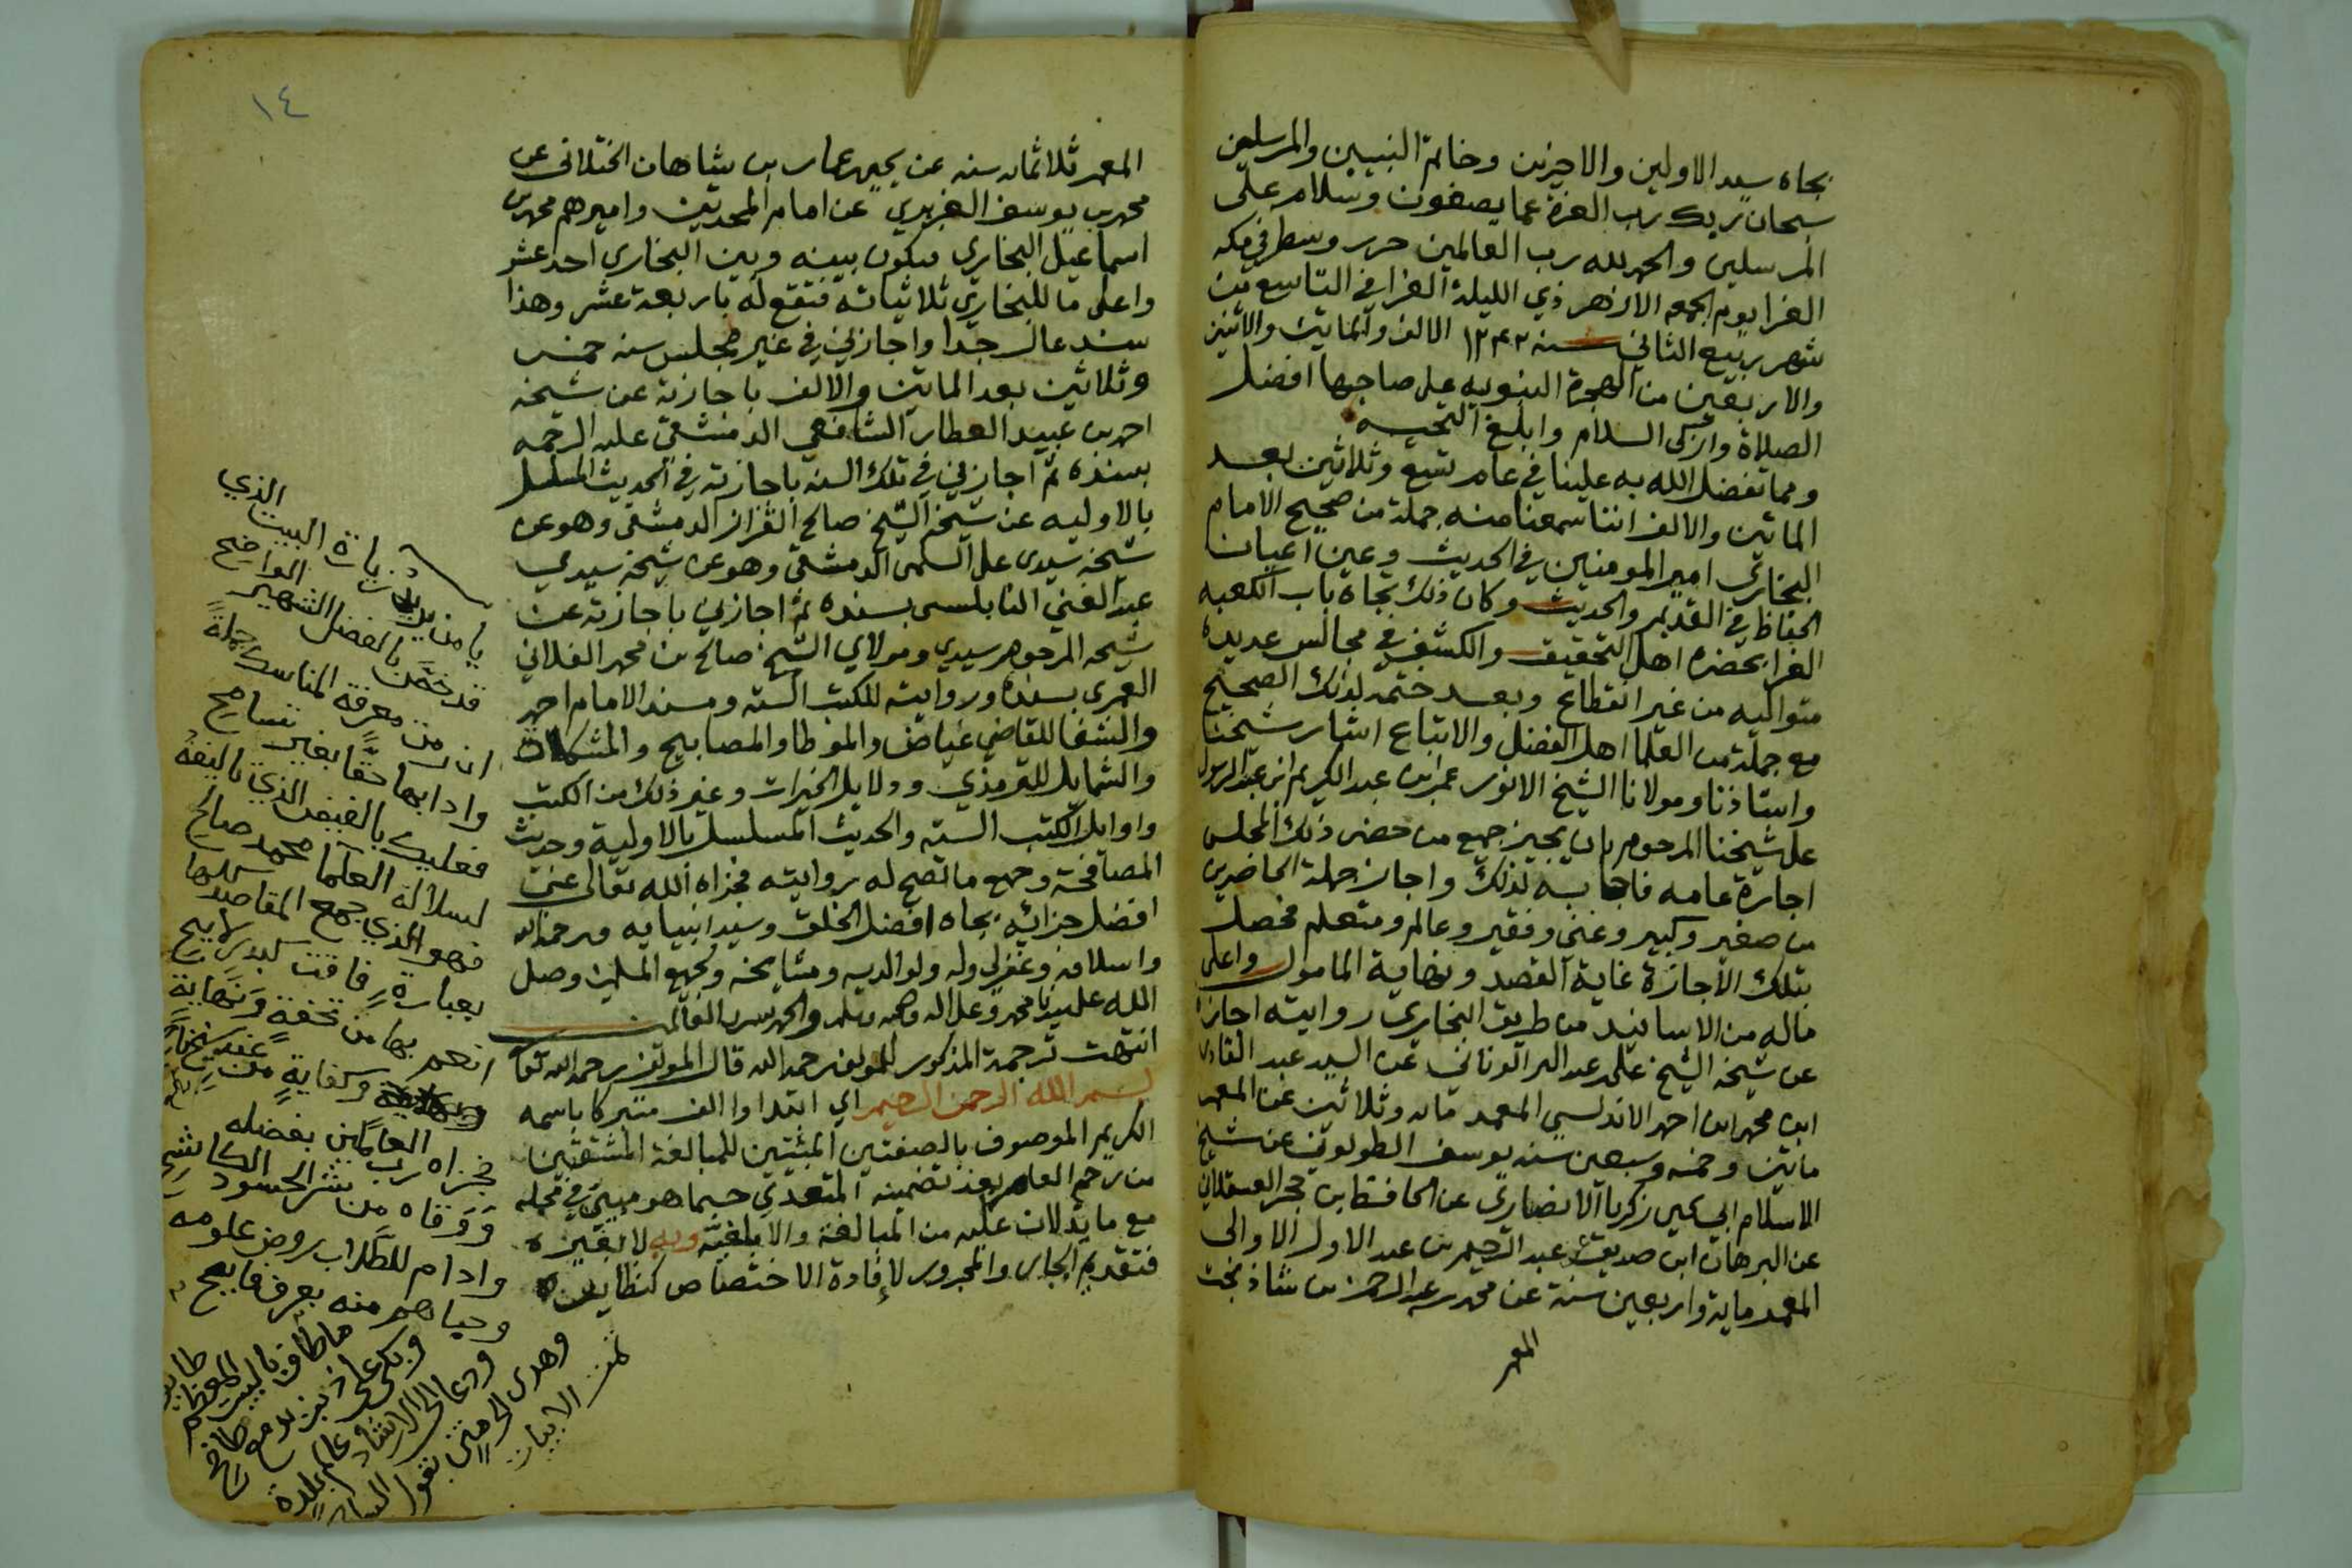 بجاه سيد الاولين والاخرين وخاتم النبيين والمرسلين
سبحان ربك رب العزة عما يصفون وسلام على
المرسلين والحمد لله رب العالمين حرر وسطر في مكه
الغرا يوم الجمعه الازهر ذي الليلة الغرا في التاسع من
شهر ربيع الثاني سنه ١٢٤٢ الالف والمايتين والاثنين
والاربعين من الهجرة النبويه على صاحبها افضل
الصلاة وازكى السلام وابلغ التحيه
ومما تفضل الله به علينا في عام تسع وثلاثين بعد
الماتين والالف اننا سمعنا منه جملة من صحيح الامام
البخاري امير المومنين في الحديث وعين اعيان
الحفاظ في القديم والحديث وكان ذلك تجاه باب الكعبه
الغرا بحضره اهل التحقيق والكشف في مجالس عديده
متواليه من غير انقطاع وبعد ختمه لذلك الصحيح
مع جملة من العلما اهل الفضل والاتباع اشار شيخنا
واستاذنا ومولانا الشيخ الانور عمر ابن عبد الكريم ابن عبد الرسول
على شيخنا المرحوم بان يجيز جميع من حضر ذلك المجلس
اجازة عامه فاجابه لذلك واجاز جملة الحاضرين
من صغير وكبير وغني وفقير وعالم ومتعلم فحصل
بتلك الاجازة غاية القصد ونهاية المامول واعلى
ماله من الاسانيد من طريق البخاري روايته اجازة
عن شيخه الشيخ على عبد البر الونائي عن السيد عبد القادر
ابن محمد ابن احمد الاندلسي المعمر مائه وثلاثين عن المعمر
مايتن وخمسه وسبعين سنه يوسف الطولوني عن شيخ
الاسلام ابي يحيى زكريا الانصاري عن الحافظ ابن حجر العسقلاني
عن البرهان ابن صديق عن عبد الرحيم بن عبد الاول الاوالى
المعمر ماية واربعين سنة عن محمد بن عبد الرحمن بن شاذ بخت
المعمر
١٤
المعمر ثلاثمائه سنه عن يحيى عمار بن شاهان الختلاني عن
محمد بن يوسف الفربري عن امام المحدثين واميرهم محمد بن
اسماعيل البخاري فيكون بينه وبين البخاري احد عشر
واعلى ما للبخاري ثلاثياته فتقع له باربعة عشر وهذا
سند عال جدا واجازني في غير مجلس سنه خمس
وثلاثين بعد الماتين والالف باجازته عن شيخه
احمد بن عبيد العطار الشافعي الدمشقي عليه الرحمه
بسنده ثم اجازني في تلك السنه باجازته في الحديث المسلسل
بالاوليه عن شيخه الشيخ صالح القزاز الدمشقي وهو عن
شيخه سيدي على السلمى الدمشقي وهو عن شيخه سيدي
عبد الغني النابلسي بسنده ثم اجازني باجازته عن
شيخه المرحوم سيدي ومولاي الشيخ صالح بن محمد الفلاني
العمري بسنده وروايته للكتب السته ومسند الامام احمد
والشفا للقاضي عياض والموطا والمصابيح والمشكات
والشمايل للترمذي ودلايل الخيرات وغير ذلك من الكتب
واوايل الكتب السته والحديث المسلسل بالاولية وحديث
المصافحة وجميع ما تصح له روايته فجزاه الله تعالى عني
افضل جزائه بجاه افضل الخلق وسيد انبيايه ورحم الله
واسلافه وغفر لي وله ولوالديه ومشايخه ولجميع المسلمين وصلى
الله على سيدنا محمد وعلى اله وصحبه وسلم والحمد لله رب العالمين
انتهت ترجمة المذكور للمولف رحمه الله قال المولف رحمه الله تعالى
بسم الله الرحمن الرحيم اي ابتدا واالف متبركا باسمه
الكريم الموصوف بالصفتين المثبتين للمبالغة المشتقتين
من رحم العام بعد تضمينه المتعدي حسبما هو مبين في محله
مع ما يدلان عليه من المبالغة والابلغية وبه لا بغيره
فتقديم الجار والمجرور لإفادة الاختصاص كنظايره
يا من يريد زيارة البيت الذي
قد خص بالفضل الشهير الواضح
ان من معرفة المناسك جملةً
وادابها حقا بغير تسامح
فعليك بالفيض الذي تاليفه
لسلالة العلما محمد صالح
فهو الذي جمع المقاصد كلها
بعبارةٍ فاقت كبدرٍ لايح
انعم بها من تحفةٍ ونهايةٍ
وكفايةٍ من عند شيخنا
فجزاه رب العالمين بفضله
ووقاه من شر الحسود الكاشح
وادام للطلاب روض علومه
وحباهم منه بعرف فايح
ما طاف بالبيت المعظم طايف
وبكى على ذنب بدمع طافح
ودعا الى الارشاد عالم بلدة
وهدى الى
تمت الابيات